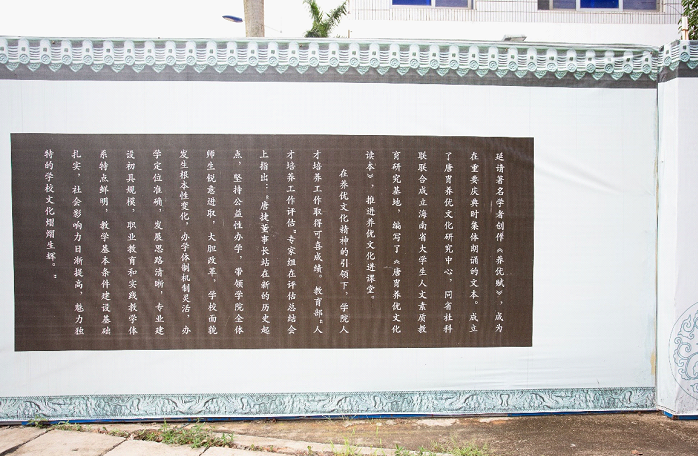 延请著名学者创作《养优赋》，成为
在重要庆典时集体朗诵的文本。成立
了唐胄养优文化研究中心，同省社科
联联合成立海南省大学生人文素质教
育研究基地，编写了《唐胄养优文化
读本》，推进养优文化进课堂。
在养优文化精神的引领下，学院人
才培养工作取得可喜成绩。教育部：人
才培养工作评估。专家组在评估总结会
上指出：。唐捷董事长站在新的历史起
点，坚持公益性办学，带领学院全体
师生锐意进取，大胆改革，学校面貌
发生根本性变化，办学体制机制灵活，办
学定位准确，发展思路清晰，专业建
设初具规模，职业教育和实践教学体
系特点鲜明，教学基本条件建设基础
扎实，社会影响力日渐提高，魅力独
特的学校文化熠熠生辉。。